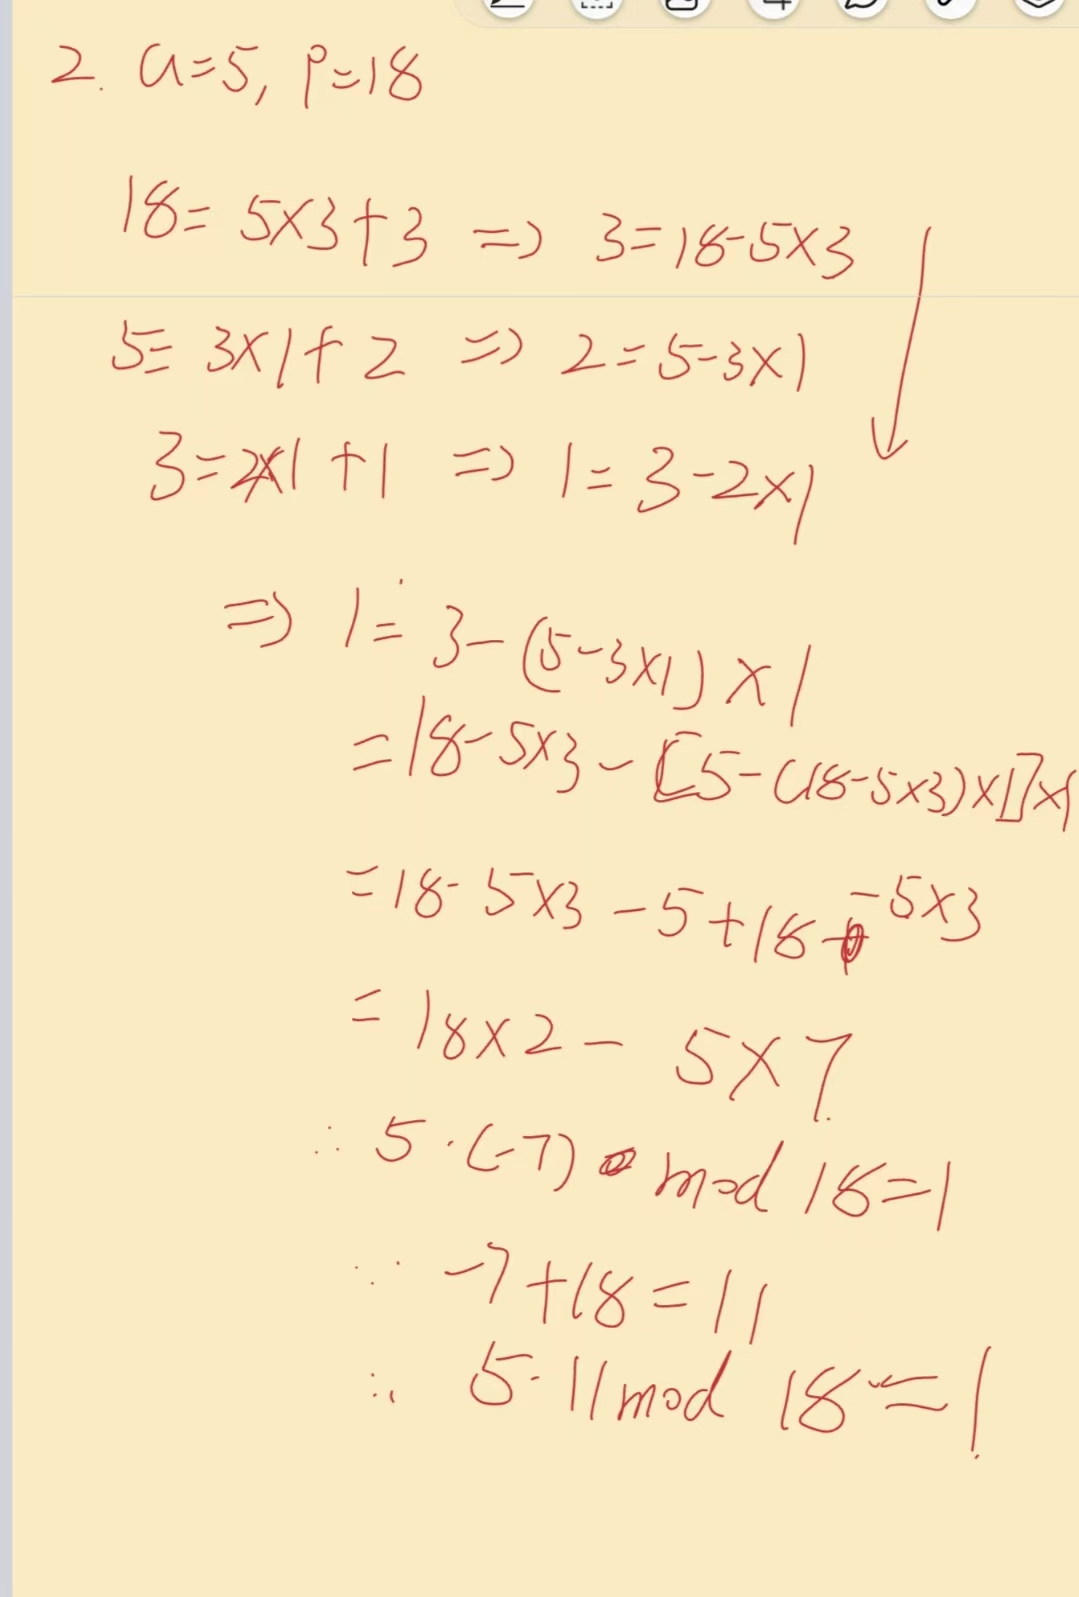 2. a=5, p=18
18= 5×3+3 => 3=18-5×3
5= 3×1+2 => 2=5-3×1
3=2×1+1 => 1=3-2×1
=> 1= 3-(5-3×1)×1
=18-5×3-[5-(18-5×3)×1]×1
=18-5×3-5+18-5×3
= 18×2- 5×7
∴ 5·(-7) mod 18=1
∵ -7+18=11
∴ 5·11 mod 18=1